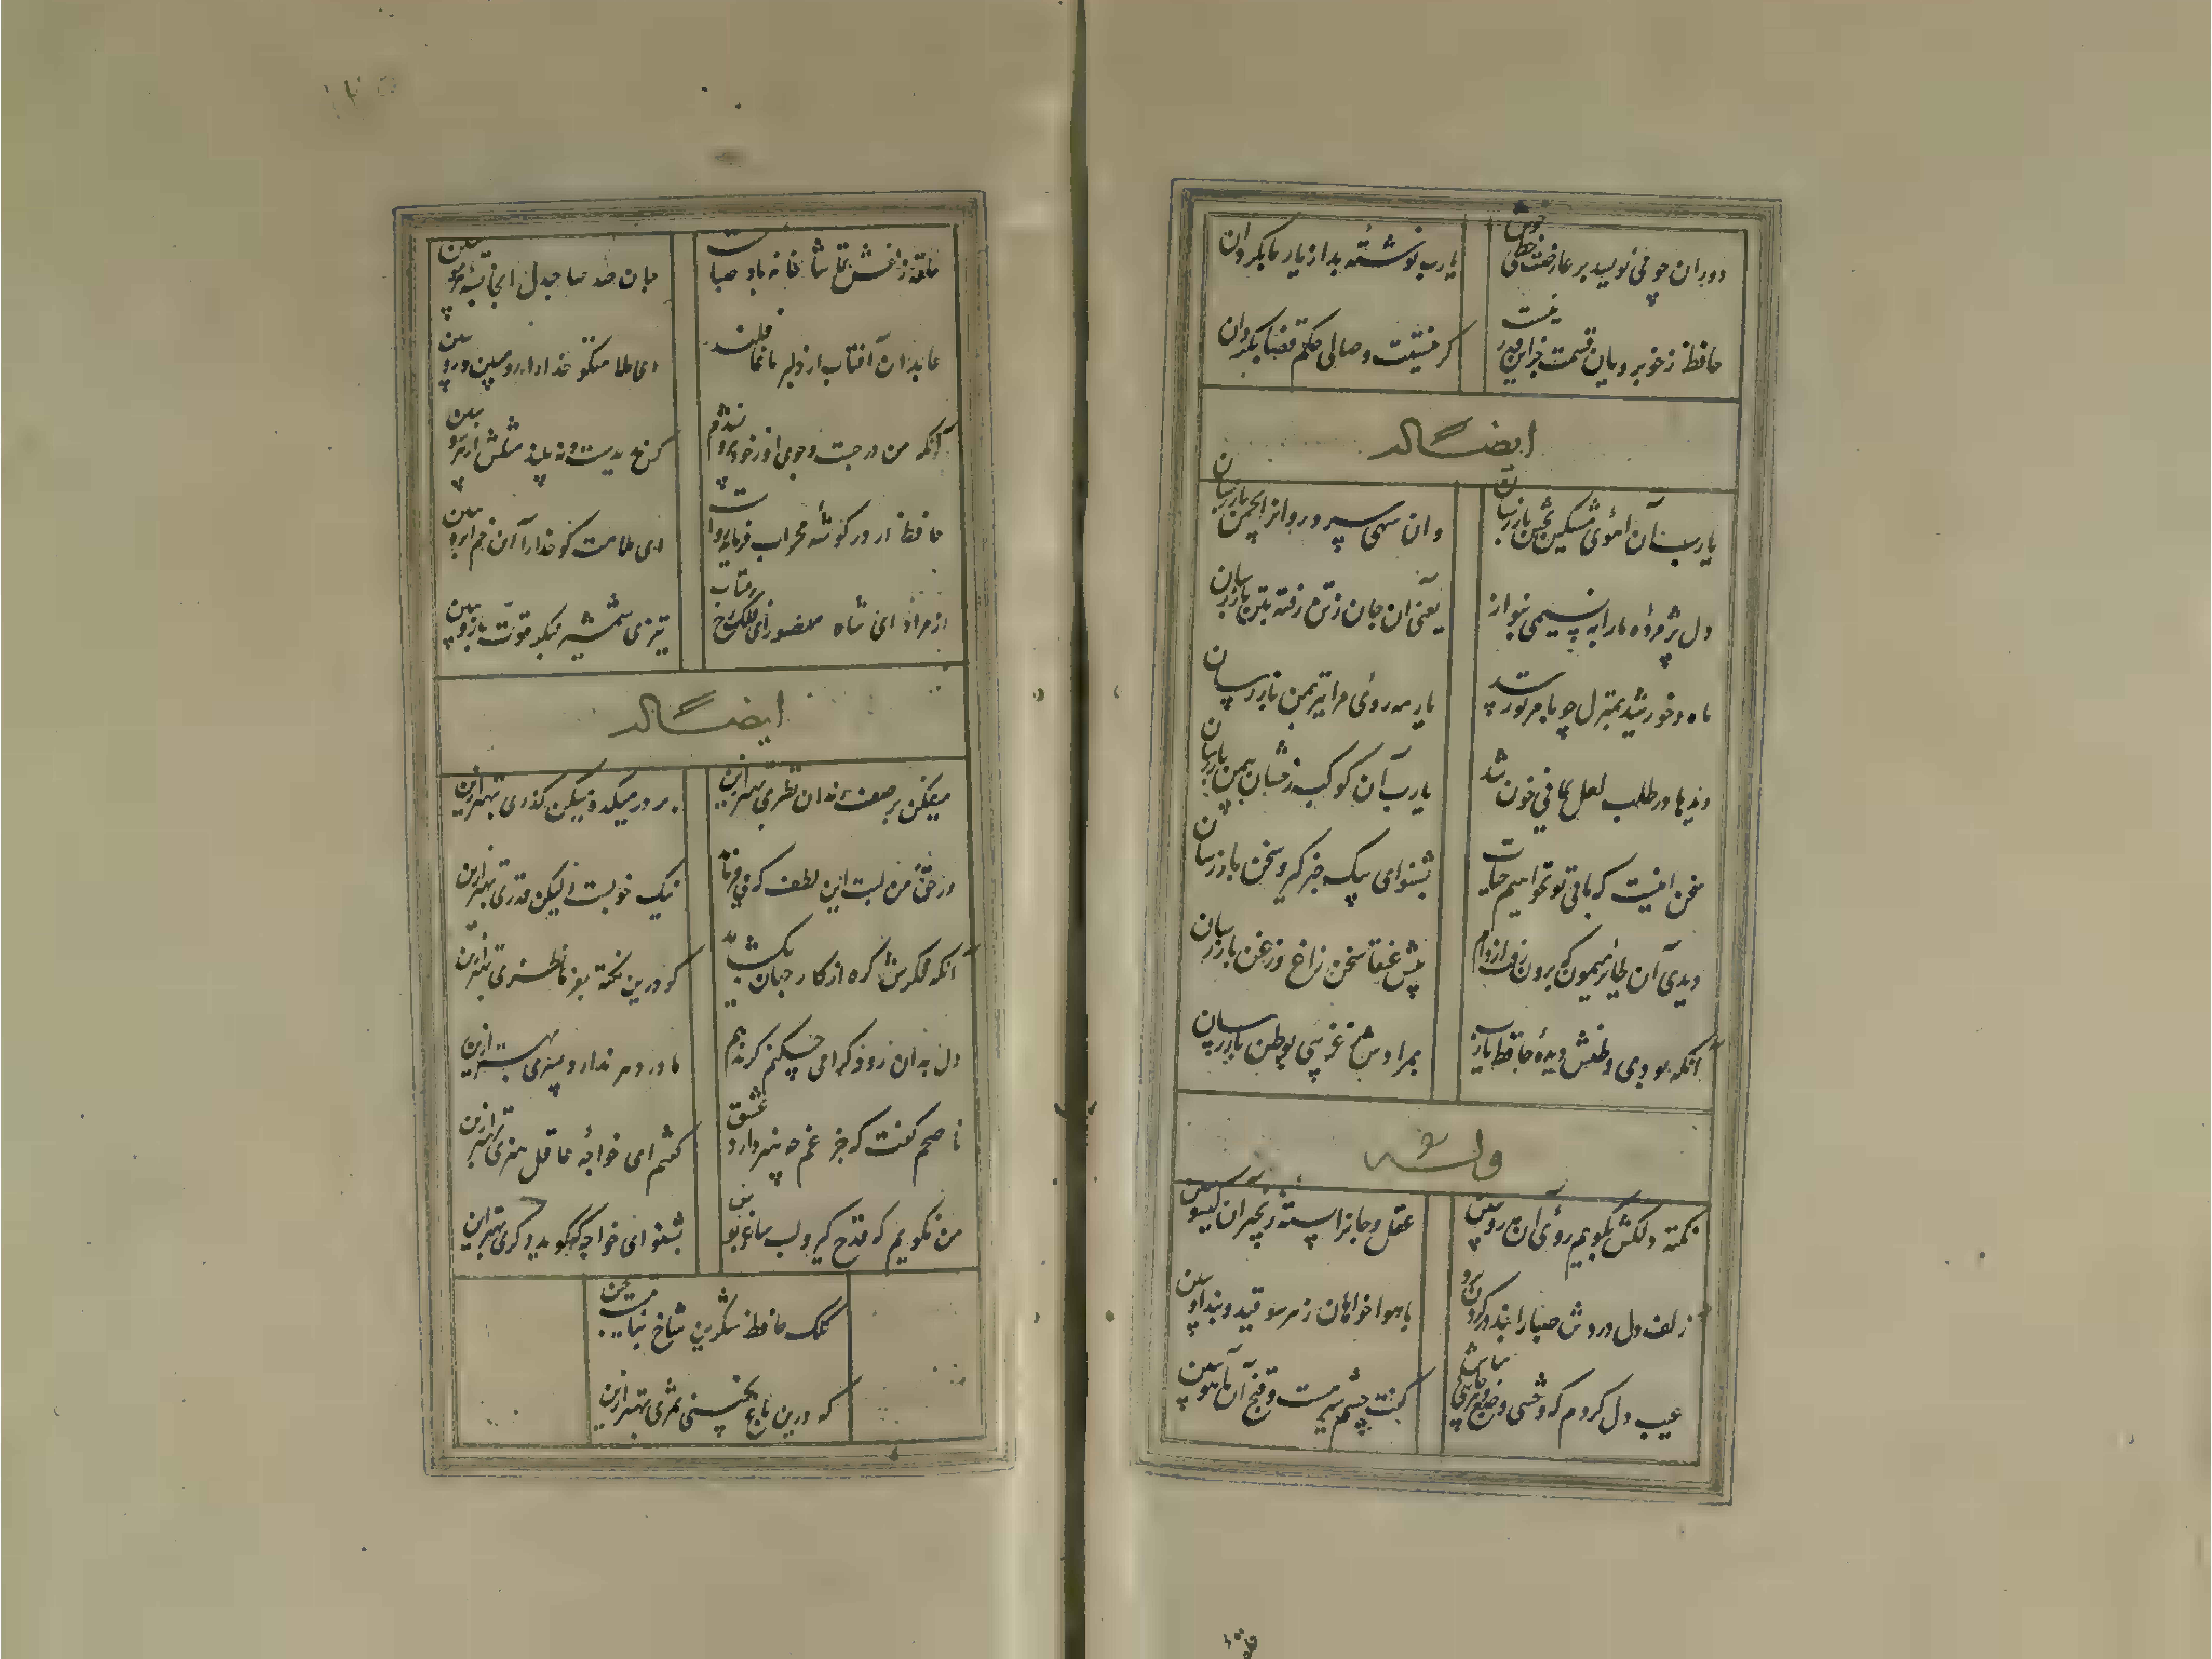 دوران چو می نویسد بر عارضت خطی خوش
یارب نوشته بد از یار ما بگردان
حافظ ز خوبرویان قسمت جز این قدر نیست
گر نیستت وصالی حکم قضا بگردان
ایضاً له
یارب آن آهوی مشکین بختن باز رسان
وان سهی سرو روان را بچمن باز رسان
دل پژمرده ما را به نسیمی بنواز
یعنی آن جان ز تن رفته بتن باز رسان
ماه و خورشید بمنزل چو بامر تو رسند
یار مه روی مرا نیز بمن باز رسان
دیدها در طلب لعل یمانی خون شد
یارب آن کوکب رخشان بیمن باز رسان
سخن اینست که ما بی تو نخواهیم حیات
بشنو ای پیک خبر گیر و سخن باز رسان
دیدی آن طایر میمون که برون رفت از دام
پیش عنقا سخن زاغ و زغن باز رسان
آنکه بودی وطنش دیدهٔ حافظ یارب
بمرادش ز غریبی بوطن باز رسان
وله
نکته دلکش بگویم روی آن مه رو ببین
عقل و جان را بسته زنجیر آن گیسو ببین
زلف دل دزدش صبا را بند در گردن
با هواخواهان زهر سو قید و بند او ببین
عیب دل کردم که وحشی وضع و هرجایی مباش
گفت چشم سرمست و غنج آن آهو ببین
حلقهٔ زلفش تماشا خانه باد صباست
جان صد صاحبدل آنجا بستهٔ مو ببین
عابدان آفتاب از دلبر ما غافلند
ای ملامتگو خدا را رو مبین و رو ببین
آنکه من در جست و جوی او ز خود بیرون شدم
کس ندیدست و نه بیند مثلش از هر سو ببین
حافظ ار در گوشهٔ محراب روا
ای ملامت گو خدا را آن خم ابرو ببین
از مراد ای شاه منصور ای فلک رخ برمتاب
تیزی شمشیر بنگر قوت بازو ببین
ایضاً له
میفکن بر صف رندان نظری بهتر ازین
بر در میکده میکن گذری بهتر ازین
در حق من لبت این لطف که می فرماید
نیک خوبست ولیکن قدری بهتر ازین
آنکه فکرش گره از کار جهان بگشاید
گو درین نکته بفرما نظری بهتر ازین
دل بدان رود گرامی چکنم گر ندهم
مادر دهر ندارد پسری بهتر ازین
ناصحم گفت که جز غم چه هنر دارد عشق
گفتم ای خواجهٔ عاقل هنری بهتر ازین
من نگویم که قدح گیر و لب ساغر بوس
بشنو ای خواجه که گوید دگری بهتر ازین
کلک حافظ شکرین شاخ نباتیست بچین
که درین باغ نچینی ثمری بهتر ازین
حلقه